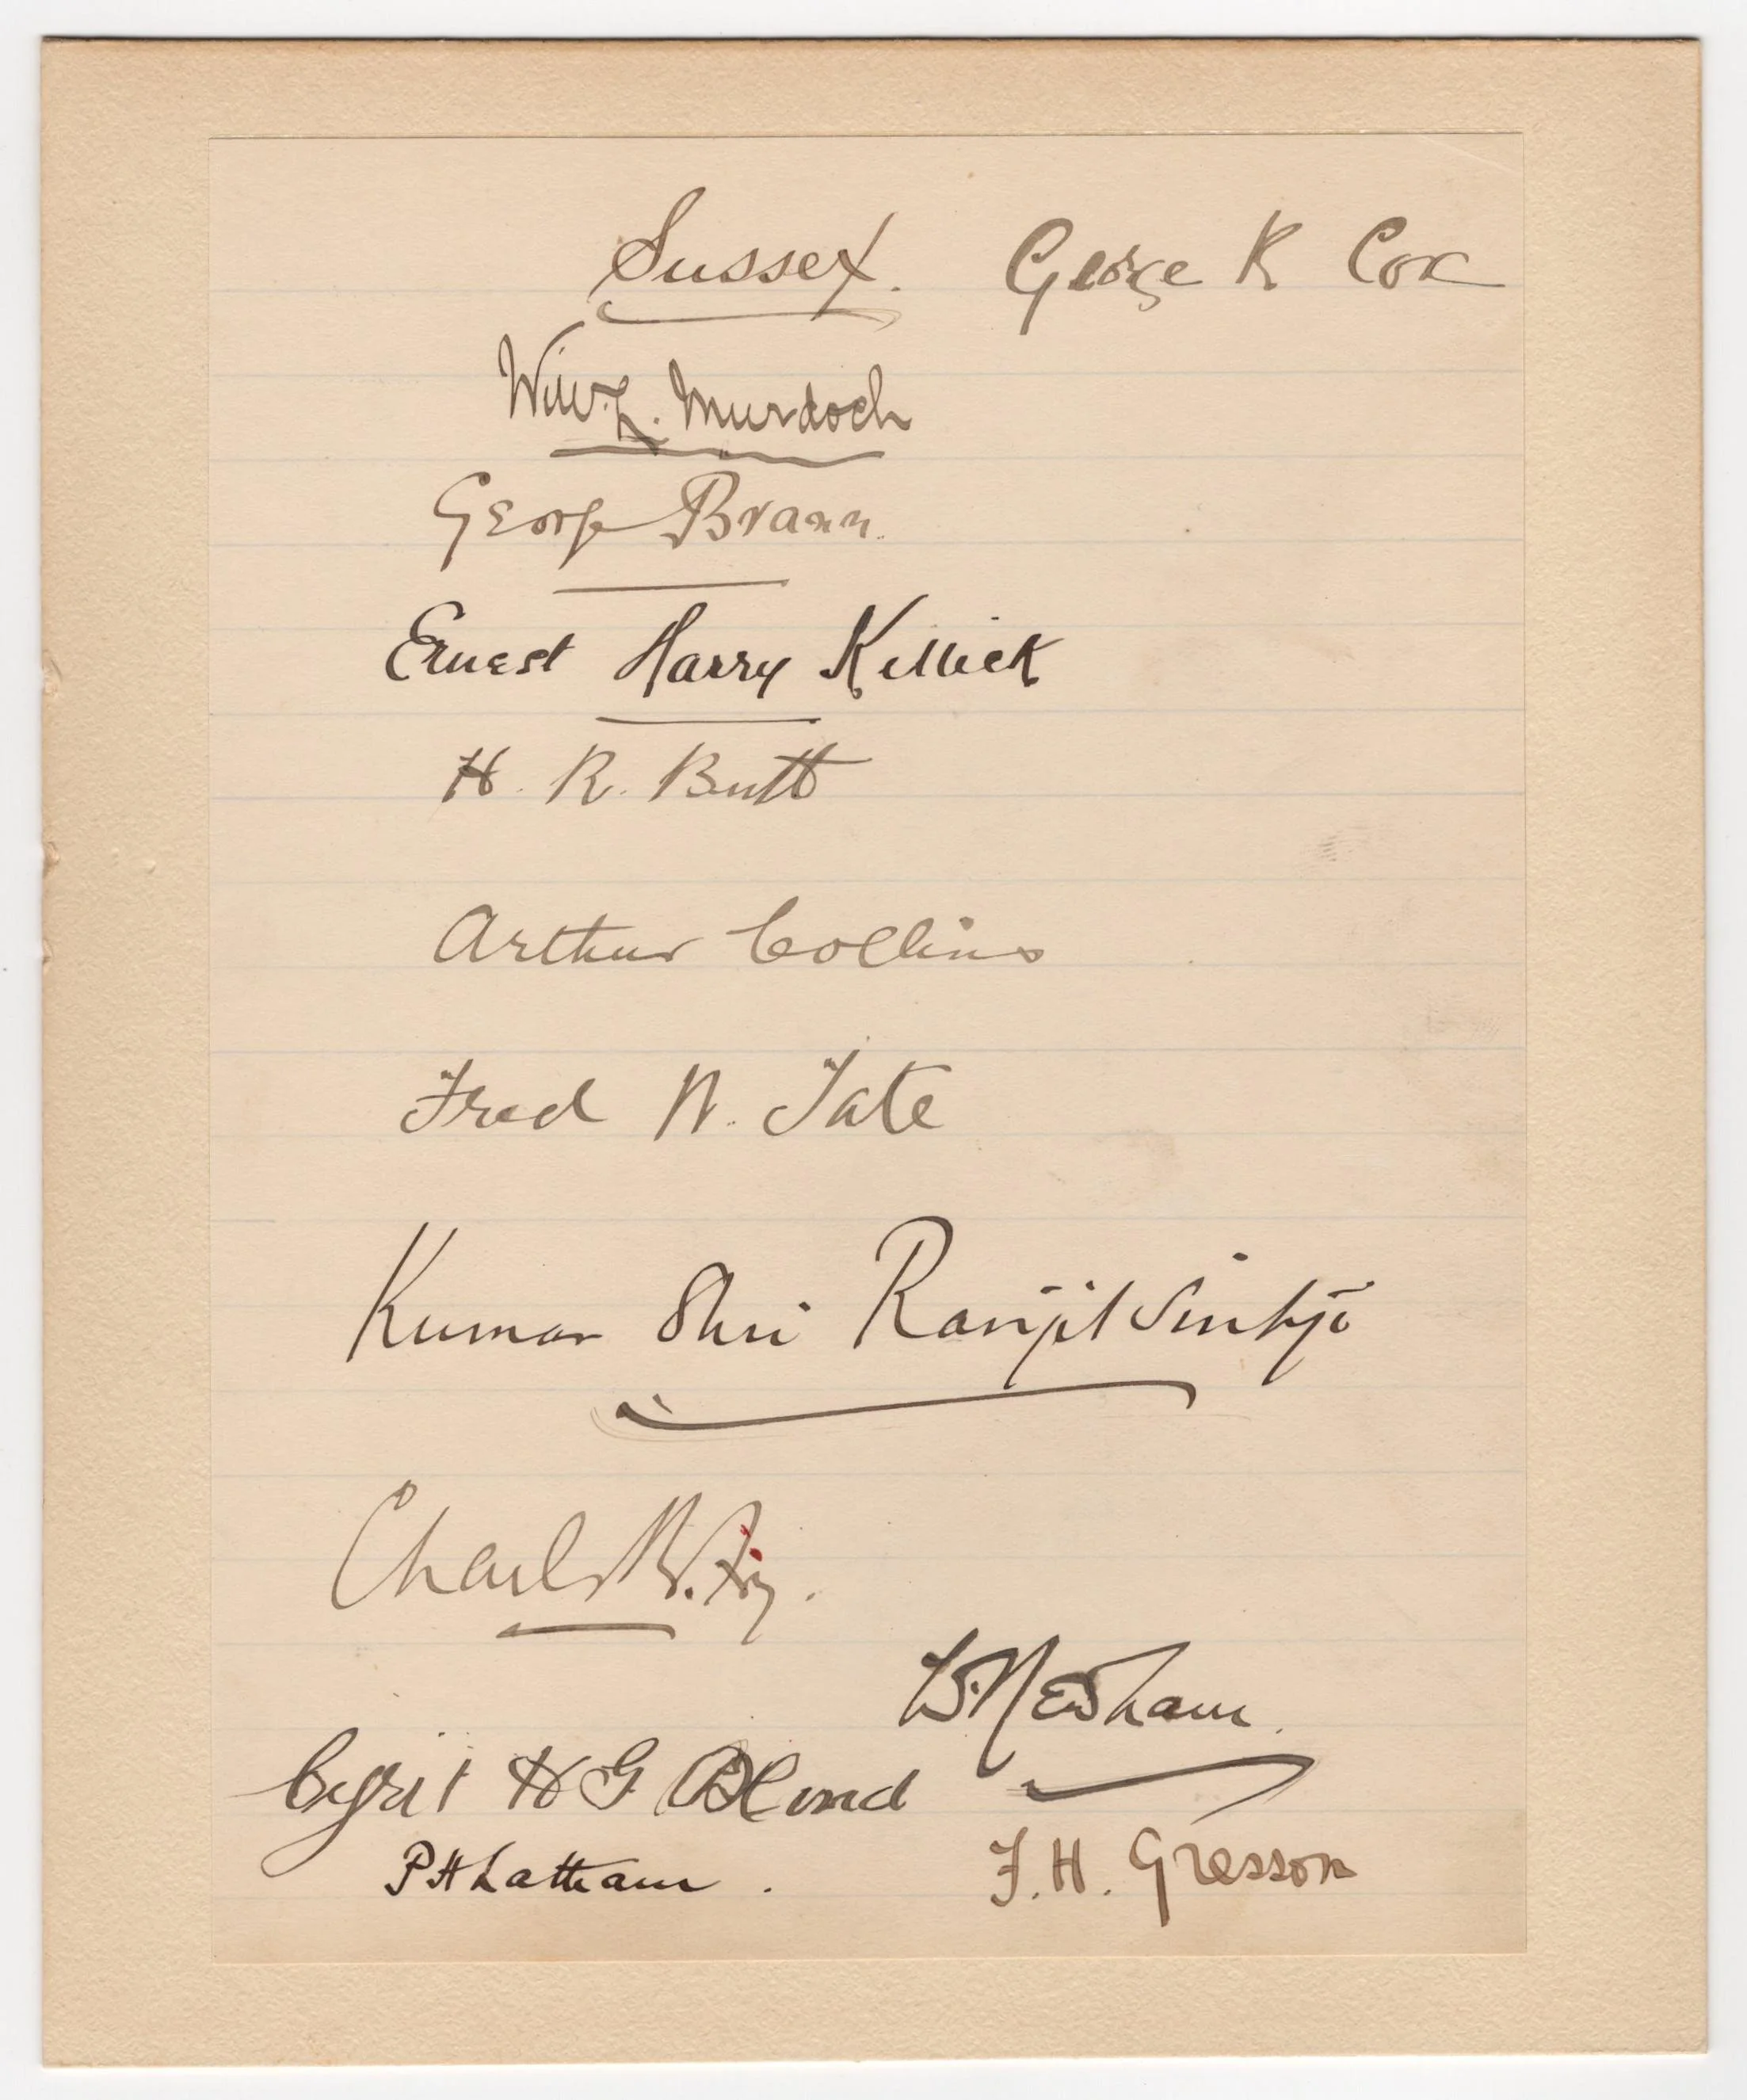 Sussex. George R Cox
Will. L. Murdoch
George Brann.
Ernest Harry Killick
H. R. Butt
Arthur Collins
Fred W. Tate
Kumar Shri Ranjitsinhji
Charles B. Fry.
B. Newham.
Cyril H G Bland
P H Latham.
F. H. Gresson